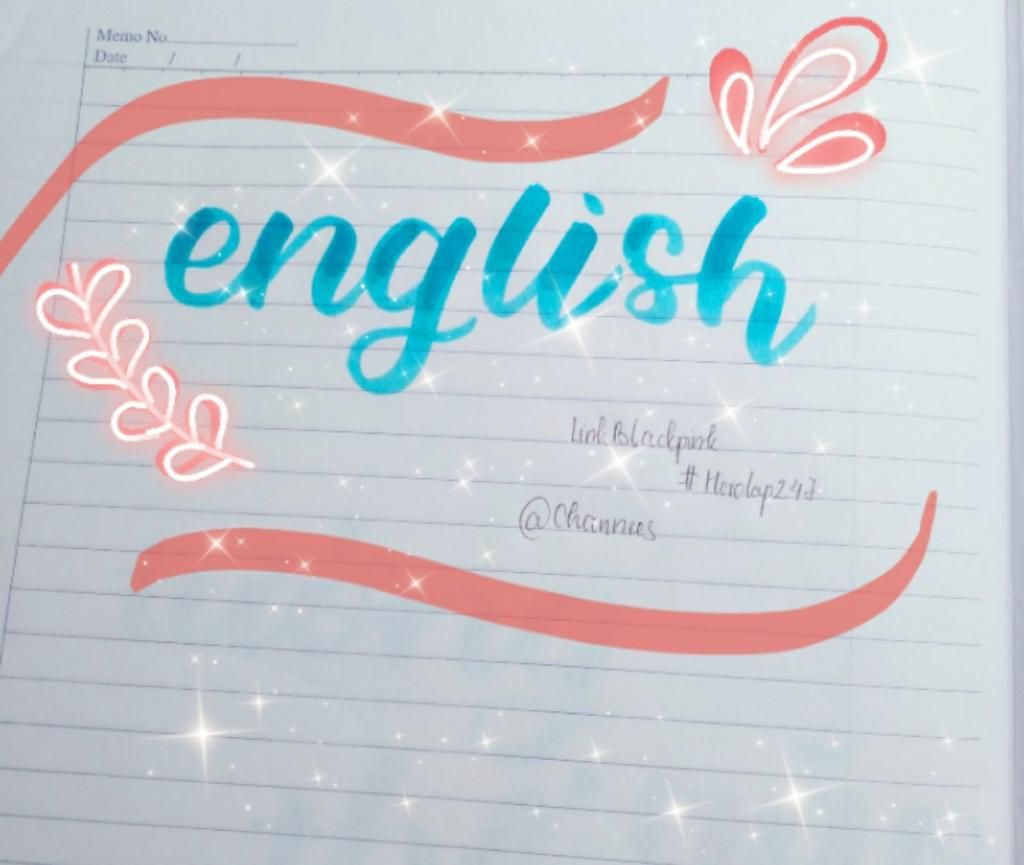 Memo No.
Date / /
english
LinkBlackpink
#Hoidap247
@Channies